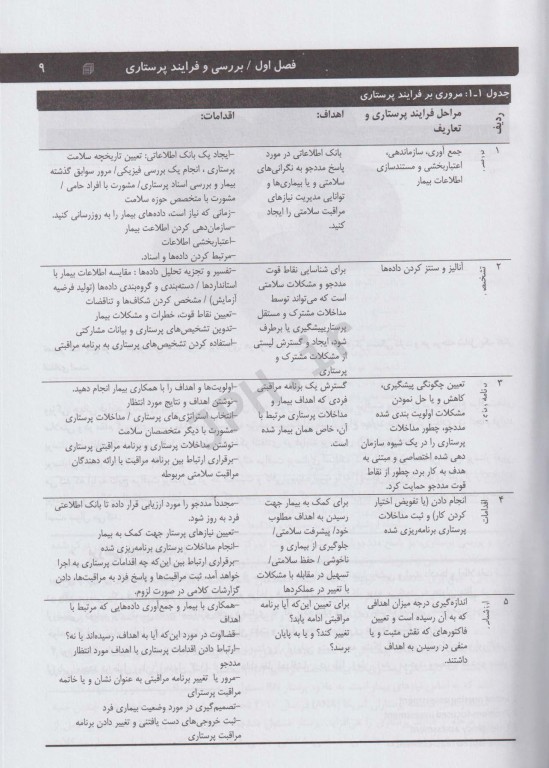 فصل اول / بررسی و فرایند پرستاری
۹
جدول ۱-۱: مروری بر فرایند پرستاری
ردیف
مراحل فرایند پرستاری و
تعاریف
اهداف:
اقدامات:
۱
جمع آوری، سازماندهی،
اعتباربخشی و مستندسازی
اطلاعات بیمار
بانک اطلاعاتی در مورد
پاسخ مددجو به نگرانی‌های
سلامتی و یا بیماری‌ها و
توانایی مدیریت نیازهای
مراقبت سلامتی را ایجاد
کنید.
–ایجاد یک بانک اطلاعاتی: تعیین تاریخچه سلامت
پرستاری ، انجام یک بررسی فیزیکی/ مرور سوابق گذشته
بیمار و بررسی اسناد پرستاری/ مشورت با افراد حامی /
مشورت با متخصص حوزه سلامت
–زمانی که نیاز است، داده‌های بیمار را به روزرسانی کنید.
–سازمان‌دهی کردن اطلاعت بیمار
–اعتباربخشی اطلاعات
–مرتبط کردن داده‌ها و اسناد.
۲
تشخیص
آنالیز و سنتز کردن داده‌ها
برای شناسایی نقاط قوت
مددجو و مشکلات سلامتی
است که می‌تواند توسط
مداخلات مشترک و مستقل
پرستارپیشگیری یا برطرف
شود، ایجاد و گسترش لیستی
از مشکلات مشترک و
پرستاری
–تفسیر و تجزیه تحلیل داده‌ها : مقایسه اطلاعات بیمار با
استانداردها / دسته‌بندی و گروه‌بندی داده‌ها (تولید فرضیه
آزمایش) / مشخص کردن شکاف‌ها و تناقضات
–تعیین نقاط قوت، خطرات و مشکلات بیمار
–تدوین تشخیص‌های پرستاری و بیانات مشارکتی
–استفاده کردن تشخیص‌های پرستاری به برنامه مراقبتی
۳
تعیین چگونگی پیشگیری،
کاهش و یا حل نمودن
مشکلات اولویت بندی شده
مددجو، چطور مداخلات
پرستاری را در یک شیوه سازمان
دهی شده اختصاصی و مبتنی به
هدف به کار برد، چطور از نقاط
قوت مددجو حمایت کرد.
گسترش یک برنامه مراقبتی
فردی که اهداف بیمار و
مداخلات پرستاری مرتبط با
آن، خاص همان بیمار شده
است.
–اولویت‌ها و اهداف را با همکاری بیمار انجام دهید.
–نوشتن اهداف و نتایج مورد انتظار
–انتخاب استراتژی‌های پرستاری / مداخلات پرستاری
–مشورت با دیگر متخصصان سلامت
–نوشتن مداخلات پرستاری و برنامه مراقبتی پرستاری
–برقراری ارتباط بین برنامه مراقبت با ارائه دهندگان
مراقبت سلامتی مربوطه
۴
اقدامات
انجام دادن (یا تفویض اختیار
کردن کار) و ثبت مداخلات
پرستاری برنامه‌ریزی شده
برای کمک به بیمار جهت
رسیدن به اهداف مطلوب
خود/ پیشرفت سلامتی/
جلوگیری از بیماری و
ناخوشی / حفظ سلامتی/
تسهیل در مقابله با مشکلات
با تغییر در عملکردها
–مجدداً مددجو را مورد ارزیابی قرار داده تا بانک اطلاعتی
فرد به روز شود.
–تعیین نیازهای پرستار جهت کمک به بیمار
–انجام مداخلات پرستاری برنامه‌ریزی شده
–برقراری ارتباط بین این‌که چه اقدامات پرستاری به اجرا
خواهد آمد، ثبت مراقبت‌ها و پاسخ فرد به مراقبت‌ها، دادن
گزارشات کلامی در صورت لزوم.
۵
اندازه‌گیری درجه میزان اهدافی
که به آن رسیده است و تعیین
فاکتورهای که نقش مثبت و یا
منفی در رسیدن به اهداف
داشتند.
برای تعیین این‌که آیا برنامه
مراقبتی ادامه یابد؟
تغییر کند؟ و یا به پایان
برسد؟
–همکاری با بیمار و جمع‌آوری داده‌هایی که مرتبط با
اهداف
–قضاوت در مورد این‌که آیا به اهداف، رسیده‌اند یا نه؟
–ارتباط دادن اقدامات پرستاری با اهداف مورد انتظار
مددجو
–مرور یا تغییر برنامه مراقبتی به عنوان نشان و یا خاتمه
مراقبت پرستاری
–تصمیم‌گیری در مورد وضعیت بیماری فرد
–ثبت خروجی‌های دست یافتنی و تغییر دادن برنامه
مراقبت پرستاری